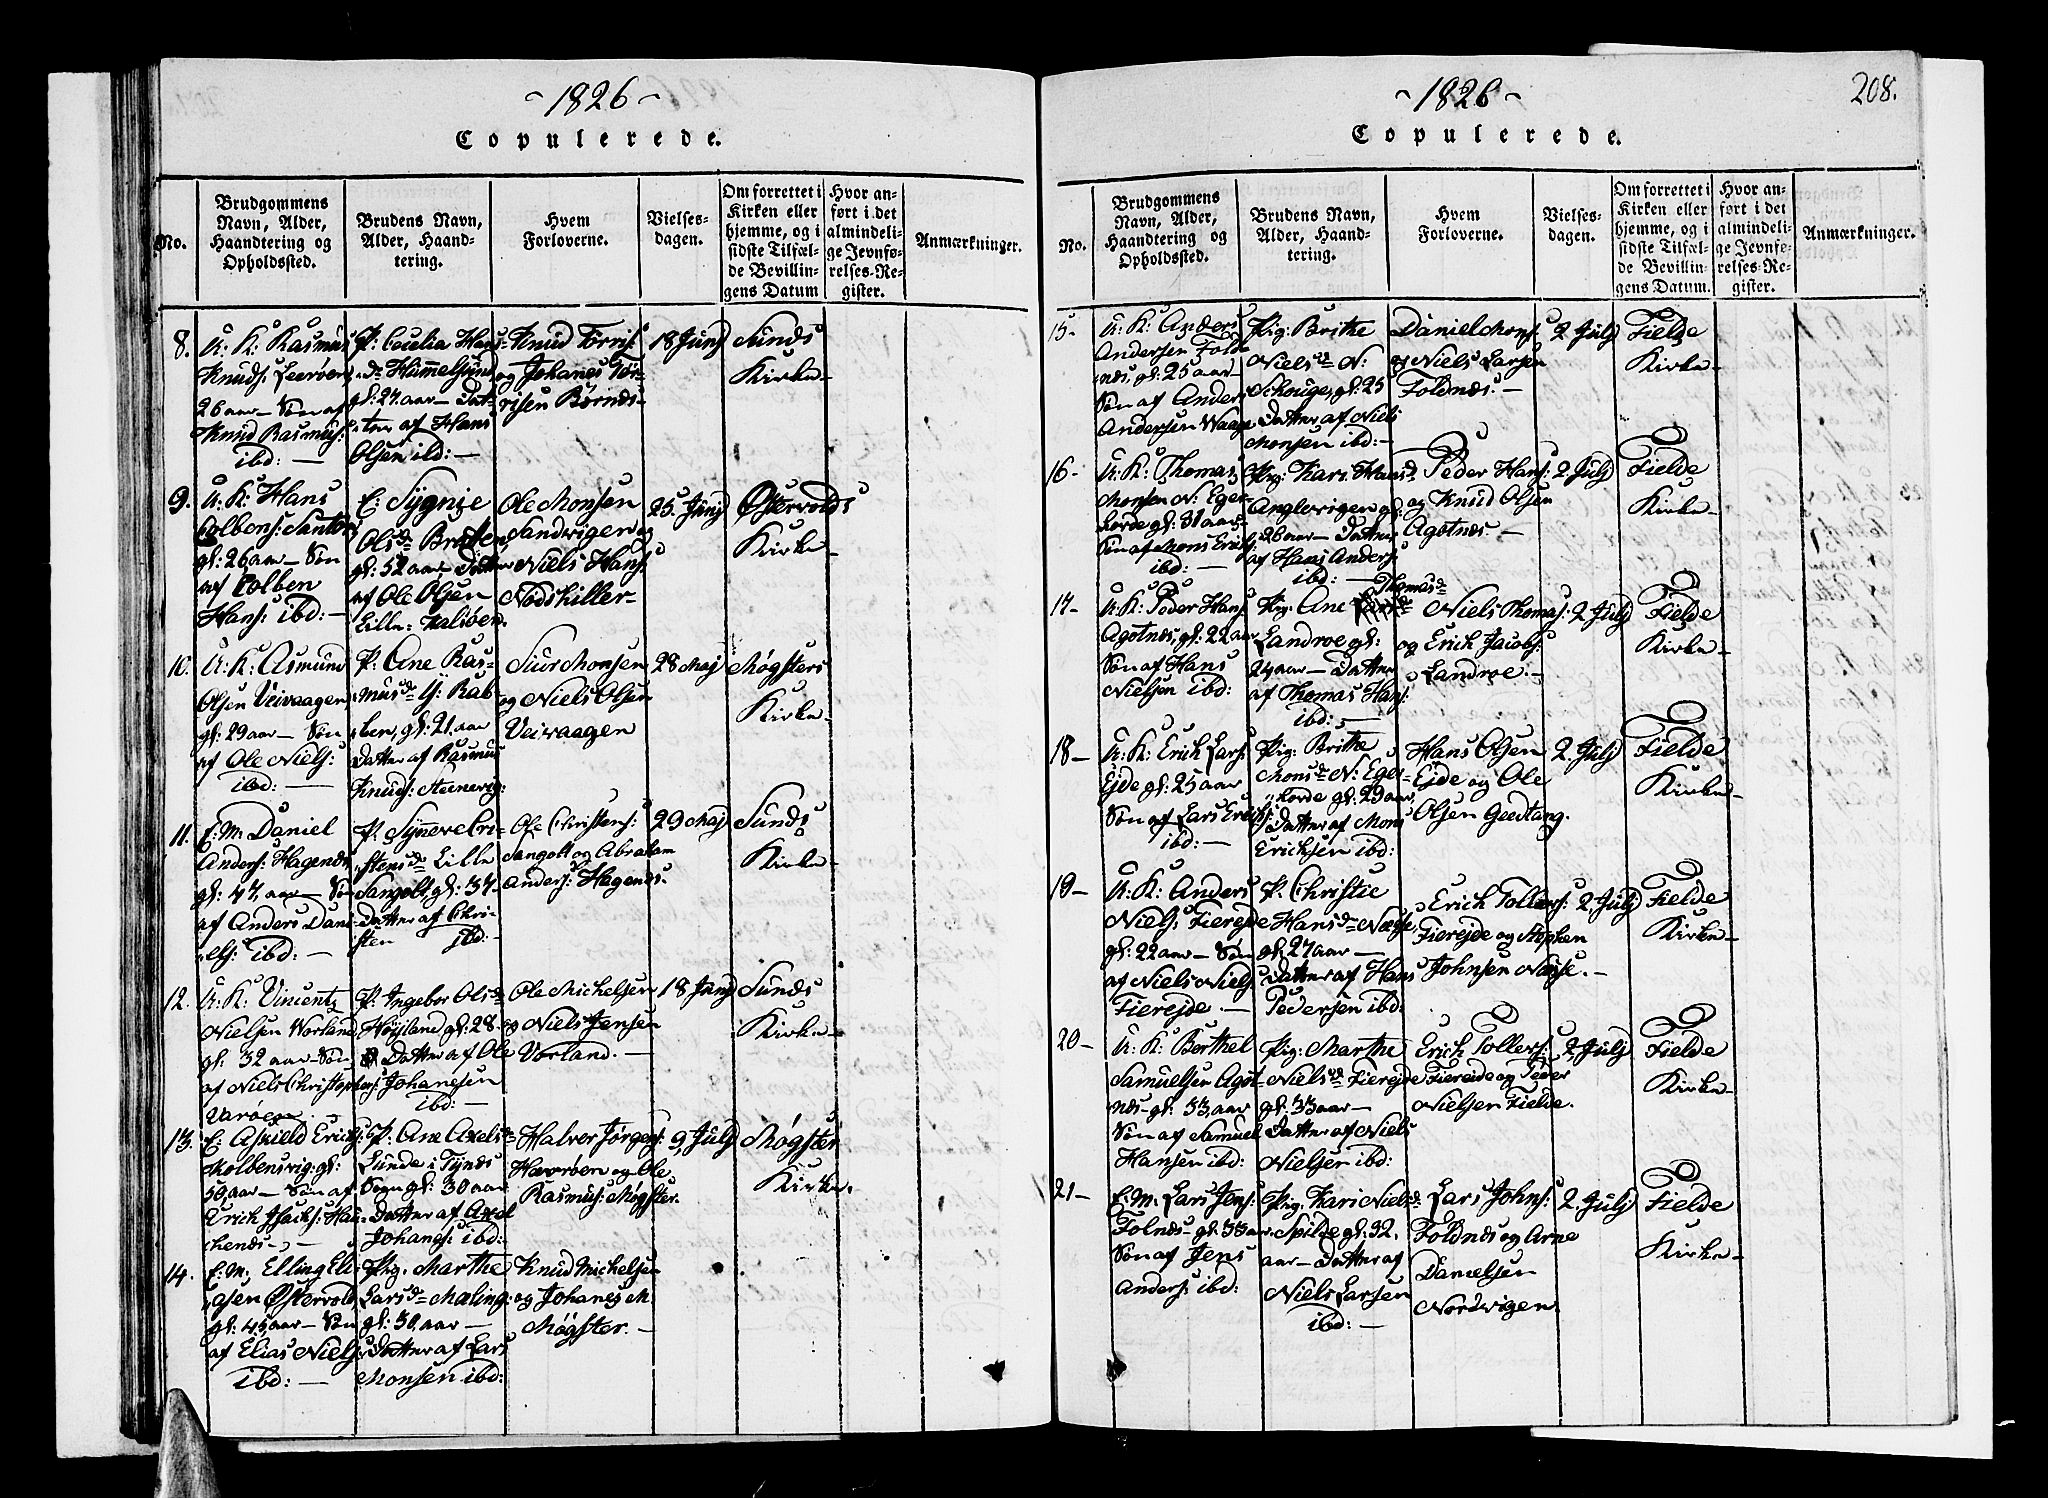 1826
Copulerede.
No.
Brudgommens
Navn, Alder,
Haandtering og
Opholdssted.
Brudens Navn,
Alder, Haand-
tering.
Hvem
Forloverne.
Vielses-
dagen.
Om forrettet i
Kirken eller
hjemme, og i
sidste Tilfæl-
de Bevillin-
gens Datum
Hvor an-
ført i det
almindeli-
ge Jevnfø-
relses-Re-
gister.
Anmærkninger.
8.
U: K: Rasmus
Knuds: Leerøen
26 aar — Søn af
Knud Rasmus:
ibd: —
P: Cecilia Hans-
d. Hummelsund
gl: 27. aar — Dat-
ter af Hans
Olsen ibd: —
Knud Torris:
og Johanes Tor-
risen Børnæs-
18 Junj
Sunds
Kirke —
9.
U: K: Hans
Colbens: Santor
gl: 26 aar — Søn
af Colben
Hans: ibd: —
E: Sygnie
Olsd. Bratten
gl: 52 aar — Datter
af Ole Olsen
Lille-Kalsøen.
Ole Monsen
Sandvigen og
Niels Hans:
Nodskiller-
25 Junj
Østervolds
Kirke —
10.
U: K: Asmund
Olsen Veivaagen
gl: 29 aar — Søn
af Ole Niels:
ibd: —
P: Ane Ras-
musd. Y: Rab-
ben, gl: 21. aar
Datter af Rasmus
Knuds: Steenevig:
Siur Monsen
og Niels Olsen
Veivaagen
28 Maj
Møgsters
Kirke —
11.
E. M: Daniel
Anders: Hagenæs
gl: 47, aar — Søn
af Anders Dani-
els: ibd: —
P: Synneve Cri-
stensd. Lille
Sangolt gl: 37-
Datter af Chri-
sten ibd: —
Ole Christens:
Sangolt og Abraham
Anders: Hagenæs.
29 Maj
Sunds
Kirke —
12.
U: K: Vincentz
Nielsen Vorland
gl: 32 aar — Søn
af Niels Christophers:
Varøen.
P: Ingebor Olsd.
Høysland gl: 28.
Datter af Ole
Johanesen
ibd: —
Ole Michelsen
og Niels Jensen
Vorland. —
18 Junj
Sunds
Kirke —
13.
E: Askield Erichs:
Kolbensvig: gl:
50, aar — Søn af
Erich Isachs: Hau-
chenæs —
P: Ane Axelsd.
Lunde i Tynæs
Sogn gl: 30 aar
Datter af Axel
Johans: ibd:
Halver Jørgens:
Hevrøen og Ole
Rasmus: Møgster.
9 Julj
Møgster
Kirke.
14.
E: M, Elling Eli-
asen Østervold,
gl: 45, aar — Søn
af Elias Niels:
ibd: —
Pig: Marthe
Larsd. Mæling:
gl: 30. aar —
Datter af Lars
Monsen ibd:
Knud Michelsen
og Johanes M.
Møgster. —
1826
208.
Copulerede.
No.
Brudgommens
Navn, Alder,
Haandtering og
Opholdssted.
Brudens Navn,
Alder, Haand-
tering.
Hvem
Forloverne.
Vielses-
dagen.
Om forrettet i
Kirken eller
hjemme, og i
sidste Tilfæl-
de Bevillin-
gens Datum.
Hvor an-
ført i det
almindeli-
ge Jevnfø-
relses-Re-
gister.
Anmærkninger.
15-
U: K: Anders
Andersen Fold-
næs, gl: 25 aar
Søn af Anders
Andersen Waage
Pig: Brithe
Nielsd. N:
Schouge, gl: 25
Datter af Niels
Monsen ibd: —
Daniel Mons:
og Niels Larsen
Foldnæs: —
2 Julj
Fielde
Kirke —
16-
U: K: Thomas
Monsen N: Eger-
horde gl: 31 aar-
Søn af Mons Erichs:
ibd: —
Pig: Kari Hansd.
Anglevigen gl:
26 aar — Datter
af Hans Anders:
ibd: —
Peder Hans:
og Knud Olsen
Agotnæs. —
2 Julj
Fielde
Kirke —
17-
U: K: Peder Hans:
Agotnæs, gl: 22 aar
Søn af Hans
Nielsen ibd:
Pig: Ane Thomasd.
Landroe gl:
24 aar — Datter
af Thomas Hans:
ibd: —
Niels Thomas:
og Erich Jacobs:
Landroe. —
2 Julj
Fielde
Kirke —
18 —
U: K: Erich Lars:
Ejde gl: 25 aar
Søn af Lars Erichs:
ibd: —
Pig: Brithe
Monsd. N: Eger-
horde gl: 29 aar,
Datter af Mons
Erichsen ibd:
Hans Olsen
Ejde og Ole
Olsen Geedtang.
2. Julj
Fielde
Kirke —
19 —
U: K: Anders
Niels: Fierejde
gl: 22 aar — Søn
af Niels Niels:
Fierejde. —
P: Christie
Hansd. Næsse,
gl: 27 aar —
Datter af Hans
Pedersen ibd:
Erich Tollers:
Fierejde og Stephen
Johnsen Næsse. —
2 Julj
Fielde
Kirke —
20 —
U: K: Berthel
Samuelsen Agot-
næs - gl: 33, aar
Søn af Samuel
Hansen ibd:
Pig: Marthe
Nielsd. Fierejde
gl: 33 aar —
Datter af Niels
Nielsen ibd:
Erich Tollers:
Fiereide og Peder
Nielsen Fielde.
2, Julj
Fielde
Kirke —
21 —
E: M. Lars Jens:
Folnæs - gl: 33 aar.
Søn af Jens
Anders: ibd:
Pig: Kari Nielsd.
Spilde gl: 32.
aar — Datter af
Niels Larsen
ibd: —
Lars Johns:
Foldnæs og Arne
Danielsen
Nordvigen.
2 Julj
Fielde
Kirke —